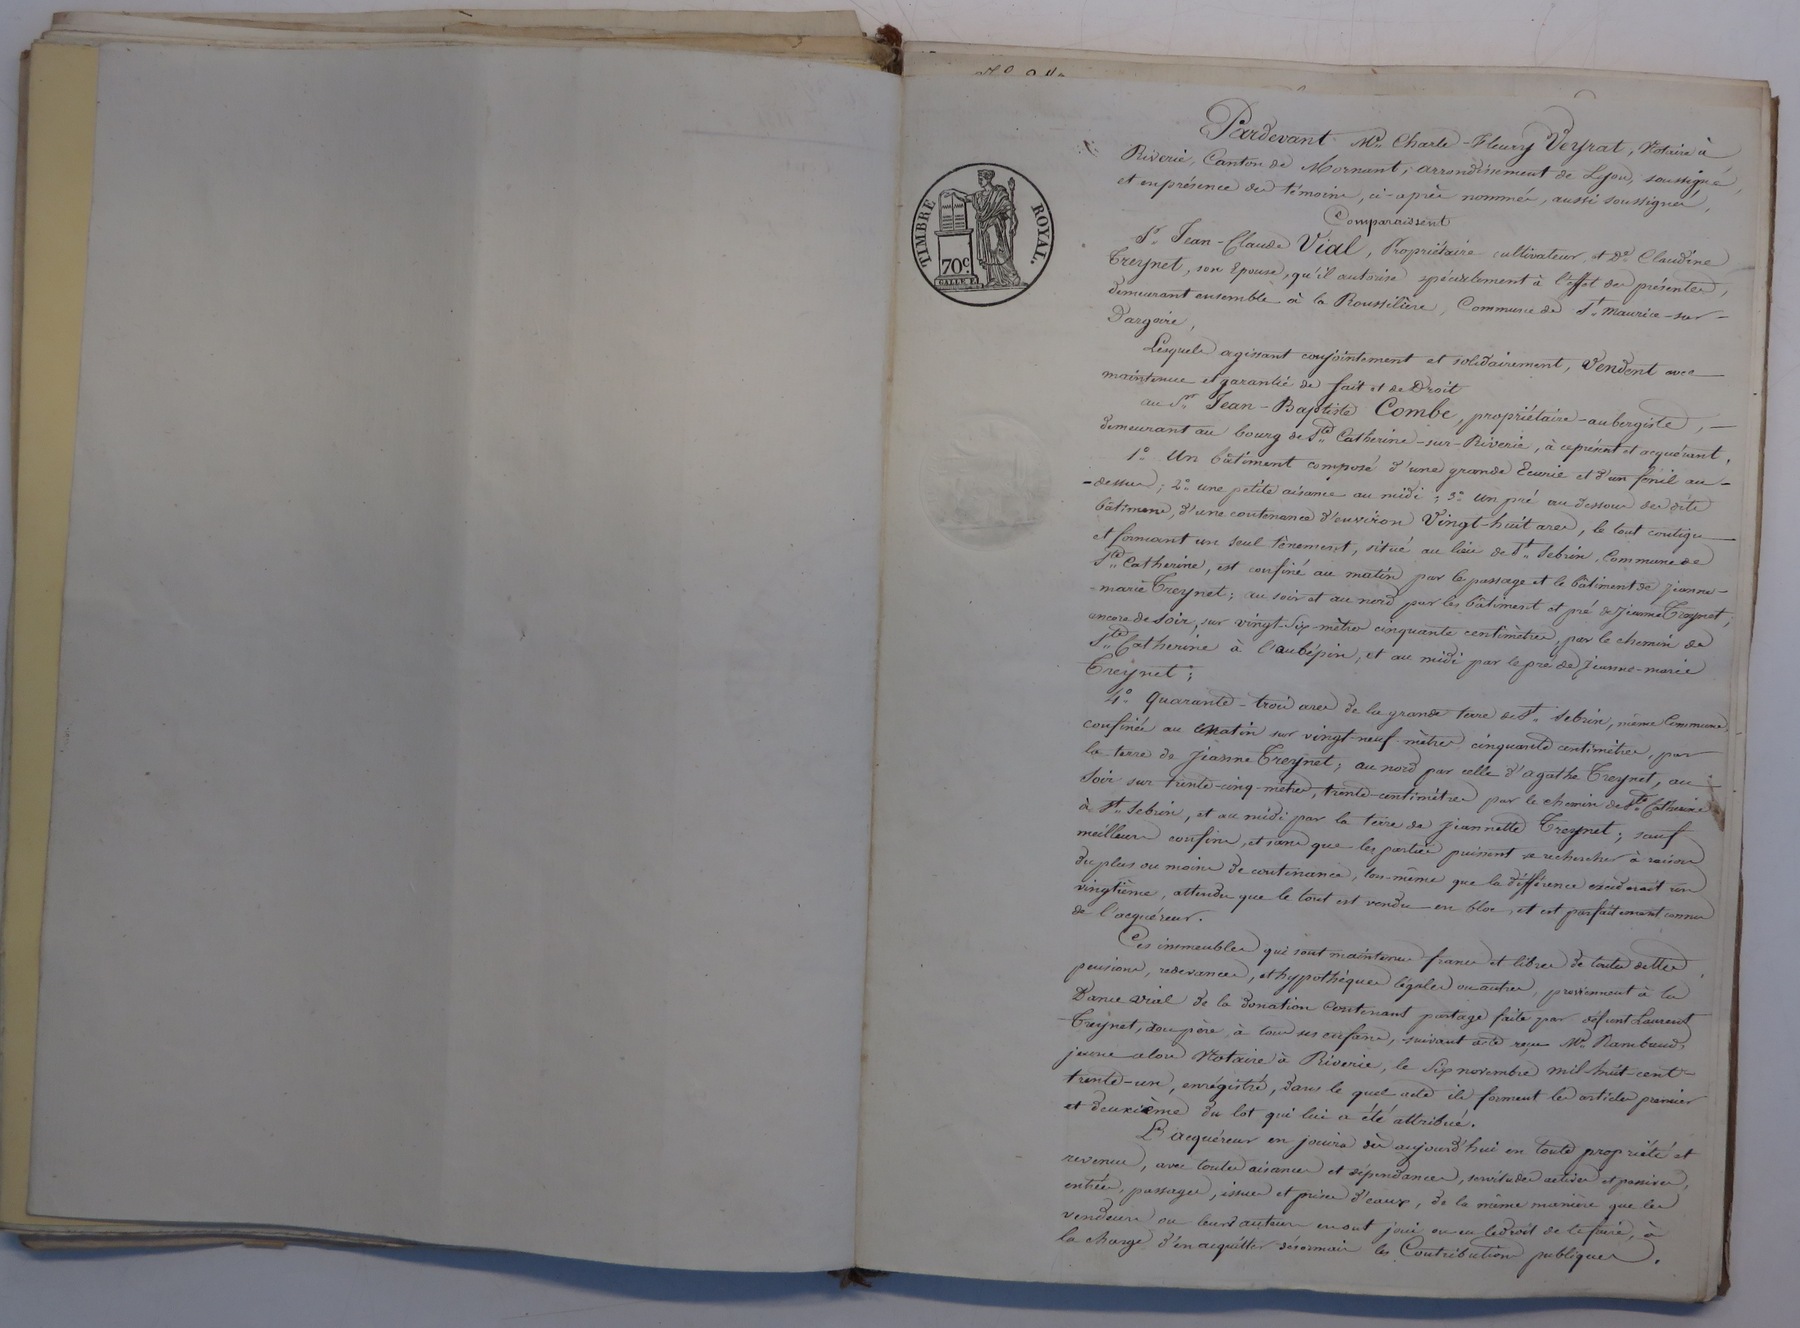 TIMBRE ROYAL.
70c.
Pardevant Me. Charle-Fleury Veyrat, Notaire à
Riverie, Canton de Mornant, arrondissement de Lyon, soussigné,
et en présence des témoins, ci-après nommés, aussi soussignés,
Comparaissent
Sr. Jean-Claude Vial, Propriétaire cultivateur, et De Claudine
Treynet, son Epouse, qu'il autorise spécialement à l'effet des présentes,
demeurant ensemble à la Roussilière, Commune de St. Maurice-sur-
Dargoire,
Lesquels agissant conjointement et solidairement, Vendent avec
maintenue et garantie de fait et de Droit
au Sr. Jean-Baptiste Combe, propriétaire-aubergiste,
demeurant au bourg de Ste. Catherine-sur-Riverie, à ce présent et acquérant,
1° Un bâtiment composé d'une grande Ecurie et d'un fénil au-
-dessus; 2° une petite aisance au midi; 3° Un pré au dessous des dits
bâtimens, d'une contenance d'environ Vingt-huit ares, le tout contigu
et formant un seul ténement, situé au lieu de St. Sebrin, Commune de
Ste. Catherine, est confiné au matin par le passage et le bâtiment de Jeanne-
-marie Treynet; au soir et au nord par les bâtiment et pré de Jeanne Treynet;
encore de soir, sur vingt-six-mètres cinquante centimètres, par le chemin de
Ste. Catherine à l'aubépin, et au midi par le pré de Jeanne-marie
Treynet;
4° Quarante-trois ares de la grande terre de St. Sebrin, même Commune,
confinée au matin sur vingt-neuf mètres cinquante centimètres, par
la terre de Jeanne Treynet; au nord par celle d'agathe Treynet, au
soir sur trente-cinq-mètres, trente-centimètres par le chemin de Ste. Catherine
à St. Sebrin, et au midi par la terre de Jeannette Treynet; sauf
meilleurs confins, et sans que les parties puissent se rechercher à raison
du plus ou moins de contenance, lors-même que la différence excéderait un
vingtième, attendu que le tout est vendu en bloc, et est parfaitement connu
de l'acquéreur.
Ces immeubles qui sont maintenus francs et libres de toutes dettes,
pensions, redevances, et hypothèques légales ou autres, proviennent à la
Dame Vial de la donation contenant partage faite par défunt Laurent
Treynet, son père, à tous ses enfans, suivant acte reçu Me. Rambaud,
jeune alors Notaire à Riverie, le Six novembre mil-huit-cent-
trente-un, enrégistré, dans le quel acte ils forment les articles premier
et deuxième du lot qui lui a été attribué.
L'acquéreur en jouira dès aujourd'hui en toute propriété et
revenus, avec toutes aisances et dépendances, servitudes actives et passives,
entrées, passages, issues et prises d'eaux, de la même manière que les
vendeurs ou leurs auteurs en ont joui ou eu le droit de le faire, à
la charge d'en acquitter désormais les Contributions publiques.